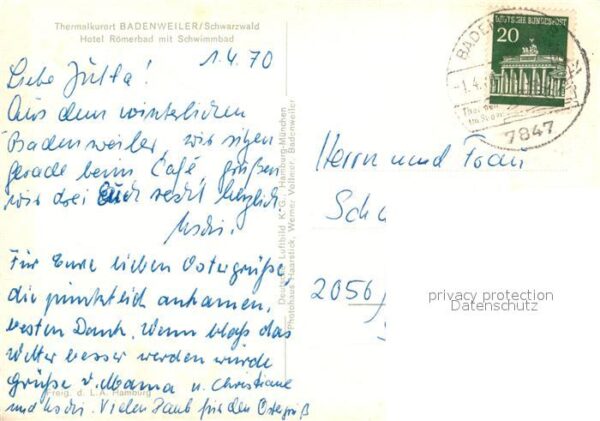 Thermalkurort BADENWEILER/Schwarzwald
Hotel Römerbad mit Schwimmbad
1.4.70
Liebe Jutta!
Aus dem winterlichen
Badenweiler, wir sitzen
gerade beim Café, grüßen
wir drei Euch recht herzlich
Uschi.
Für Eure lieben Ostergrüße,
die pünktlich ankamen,
besten Dank. Wenn bloß das
Wetter besser werden würde
Grüße v. Mama u. Christiane
und Uschi. Vielen Dank für den Ostergruß
Freig. d. L.A. Hamburg
Deutsche Luftbild K.G., Hamburg-München
Photohaus Haarstick, Werner Vollmer, Badenweiler
DEUTSCHE BUNDESPOST
20
BADEN
7847
Herrn und Frau
Sch
2056
privacy protection
Datenschutz